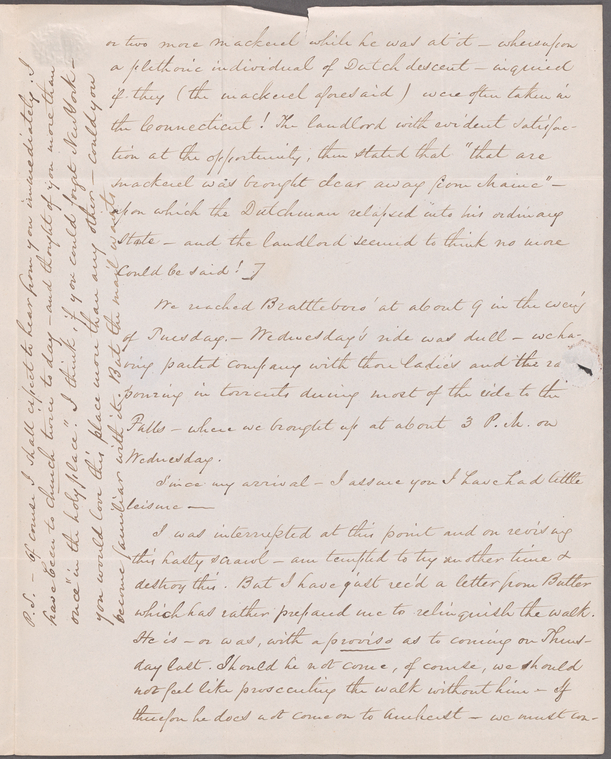 or two more mackerel while he was at it – whereupon
a plethoric individual of Dutch descent – inquired
if they (the mackerel aforesaid) were often taken in
the Connecticut! The landlord with evident satisfac-
tion at the opportunity, then stated that "that are
mackerel was brought clear away from Maine" –
upon which the Dutchman relapsed into his ordinary
State – and the landlord seemed to think no more
could be said! ]
We reached Brattleboro' at about 9 in the eve'g
of Tuesday. – Wednesday's ride was dull – we ha-
ving parted company with those ladies and the ra
pouring in torrents during most of the ride to the
Falls – where we brought up at about 3 P.M. on
Wednesday.
Since my arrival – I assure you I have had little
leisure —
I was interrupted at this point and on revising
this hasty scrawl – am tempted to try another time &
destroy this. But I have just rec'd a letter from Butler
which has rather prepared me to relinquish the walk.
He is – or was, with a proviso as to coming on Thurs-
day last. Should he not come, of course, we should
not feel like prosecuting the walk without him – If
therefore he does not come on to Amherst – we must con-
P.S. – Of course I shall expect to hear from you immediately. I
have been to church twice to day – and thought of you more than
once "in the holy place". I think, if you could forget New York –
you would love this place more than any other – could you
become familiar with it. But the mail waits